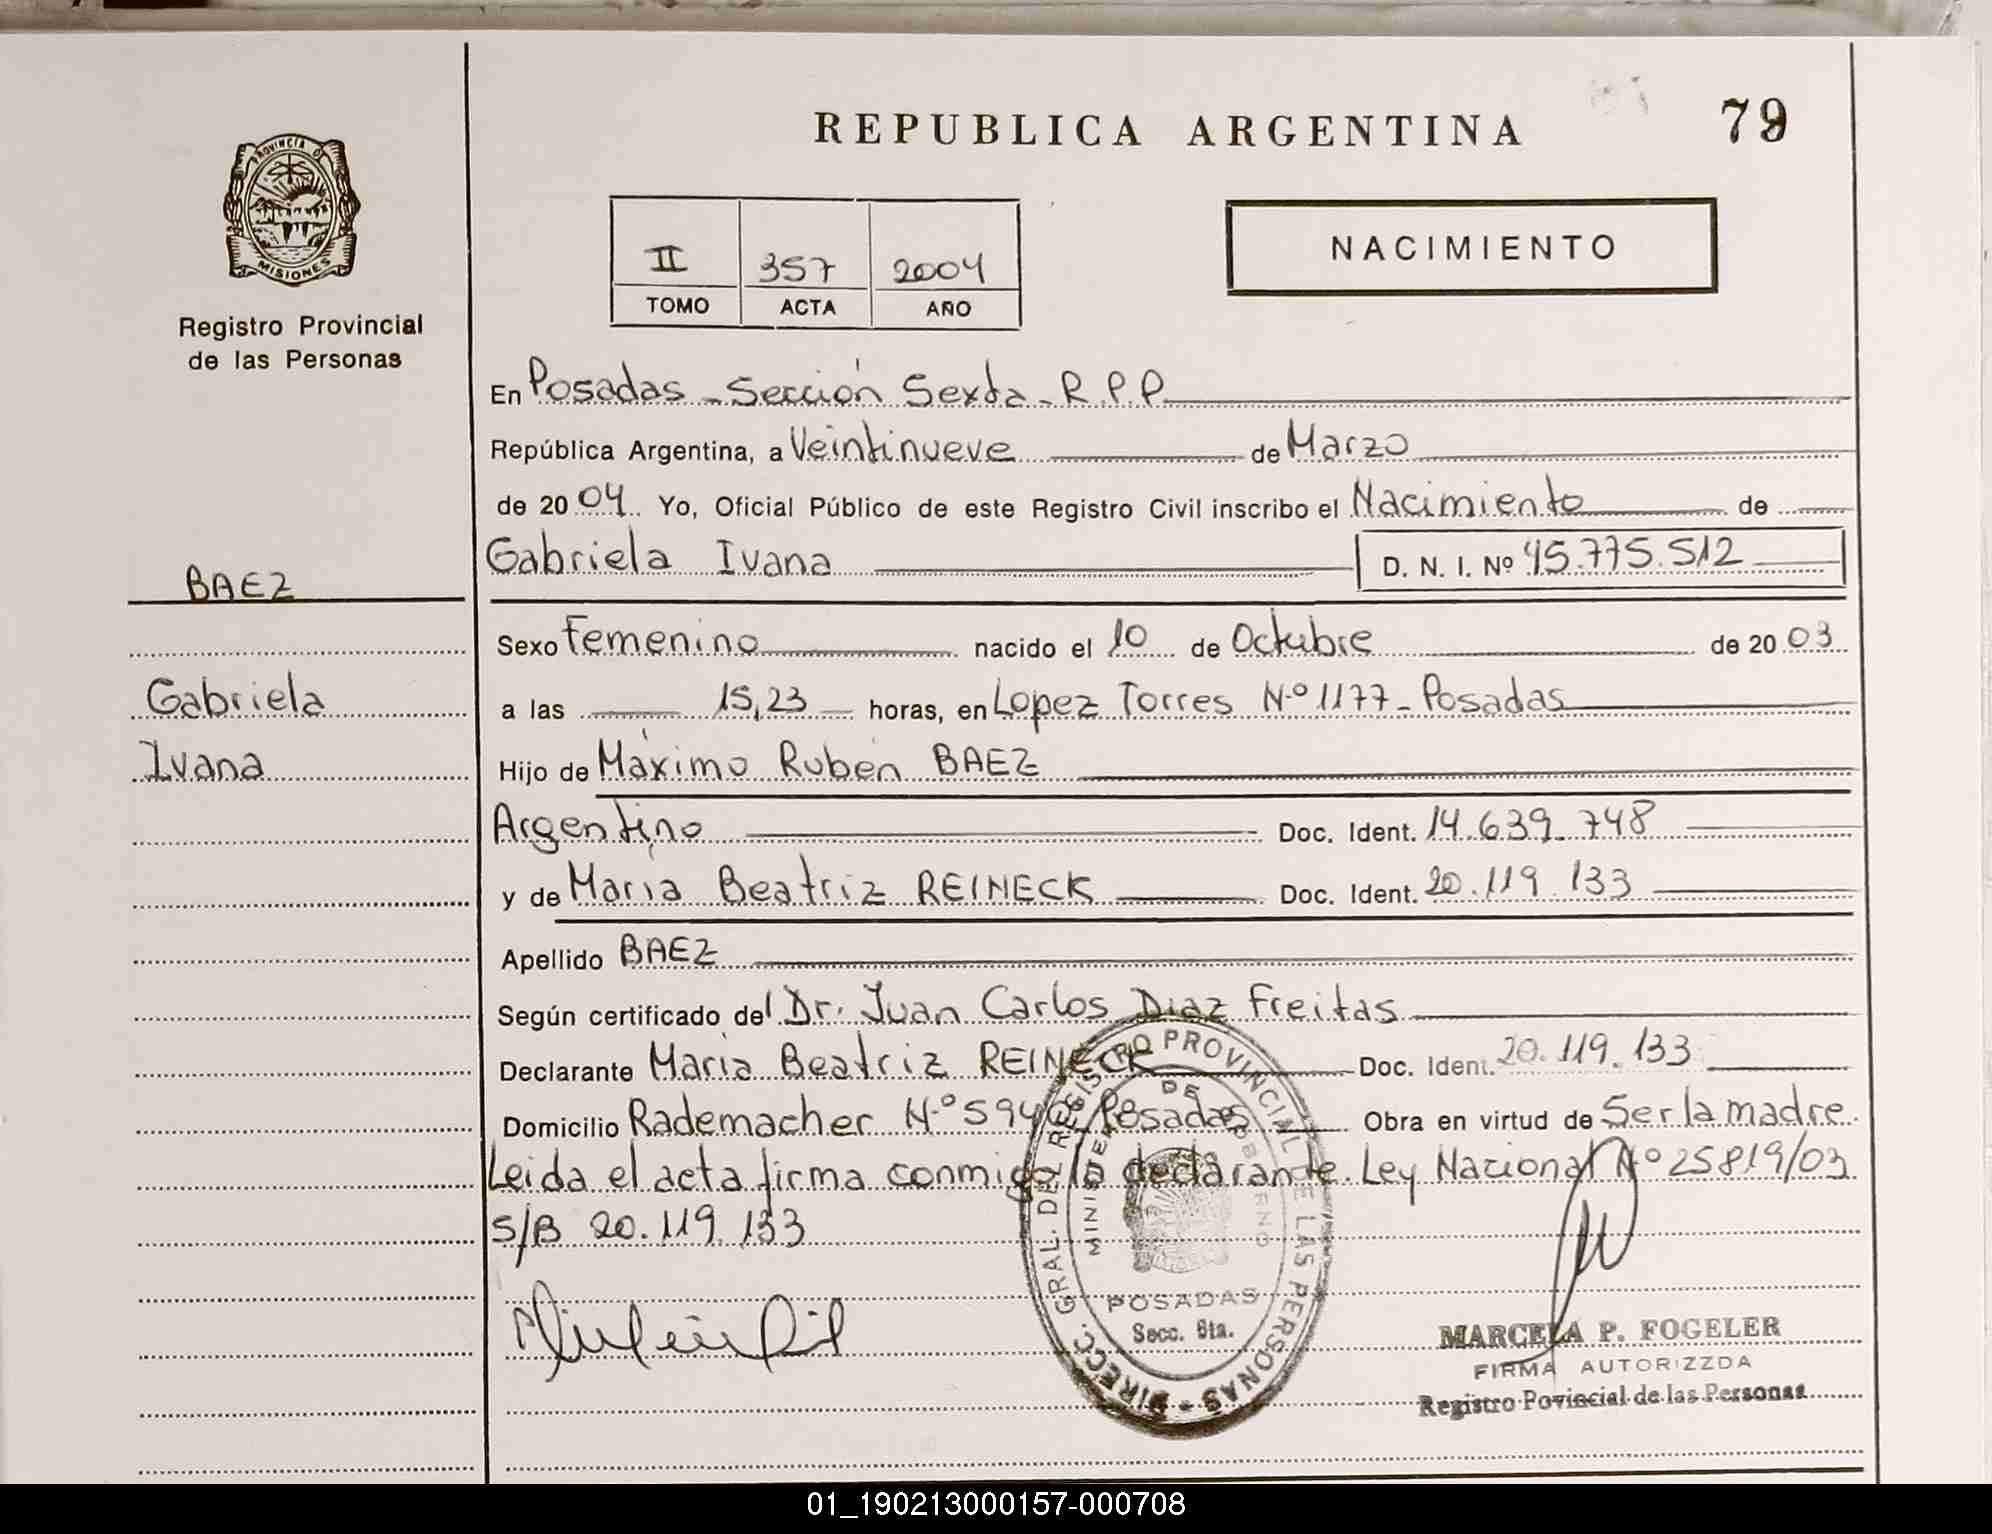 REPUBLICA ARGENTINA
79
PROVINCIA D
MISIONES
Registro Provincial
de las Personas
II 357 2004
TOMO ACTA AÑO
NACIMIENTO
En Posadas - Sección Sexta - R.P.P.
República Argentina, a Veintinueve de Marzo
de 2004. Yo, Oficial Público de este Registro Civil inscribo el Nacimiento de
Gabriela Ivana D. N. I. Nº 45.775.512
BAEZ
Sexo Femenino nacido el 10 de Octubre de 2003
a las 15,23 horas, en Lopez Torres N.º 1177 - Posadas
Gabriela
Ivana
Hijo de Máximo Rubén BAEZ
Argentino Doc. Ident. 14.639.748
y de María Beatriz REINECK Doc. Ident. 20.119.133
Apellido BAEZ
Según certificado del Dr. Juan Carlos Diaz Freitas
Declarante María Beatriz REINECK Doc. Ident. 20.119.133
Domicilio Rademacher N.º Posadas Obra en virtud de Ser la madre.
Leida el acta firma conmigo la declarante. Ley Nacional Nº 25819/03
S/B 20.119.133
DIRECC. GRAL. DEL REGISTRO PROVINCIAL DE LAS PERSONAS
MINISTERIO DE GOBIERNO
POSADAS
Secc. 6ta.
MARCELA P. FOGELER
FIRMA AUTORIZZDA
Registro Povincial de las Personas
01_190213000157-000708